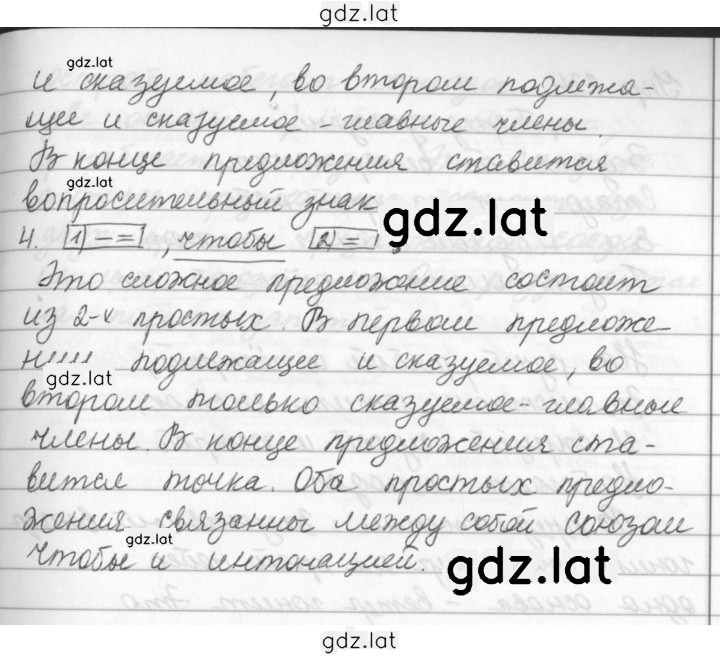 gdz.lat
gdz.lat
и сказуемое, во втором подлежа-
щее и сказуемое - главные члены.
В конце предложения ставится
gdz.lat
вопросительный знак
gdz.lat
4. [1) – =], чтобы [2) = ].
Это сложное предложение состоит
из 2-х простых. В первом предложе
нии подлежащее и сказуемое, во
gdz.lat
втором только сказуемое - главные
члены. В конце предложения ста-
вится точка. Оба простых предло-
жения связанны между собой союзом
gdz.lat
чтобы и интонацией.
gdz.lat
gdz.lat